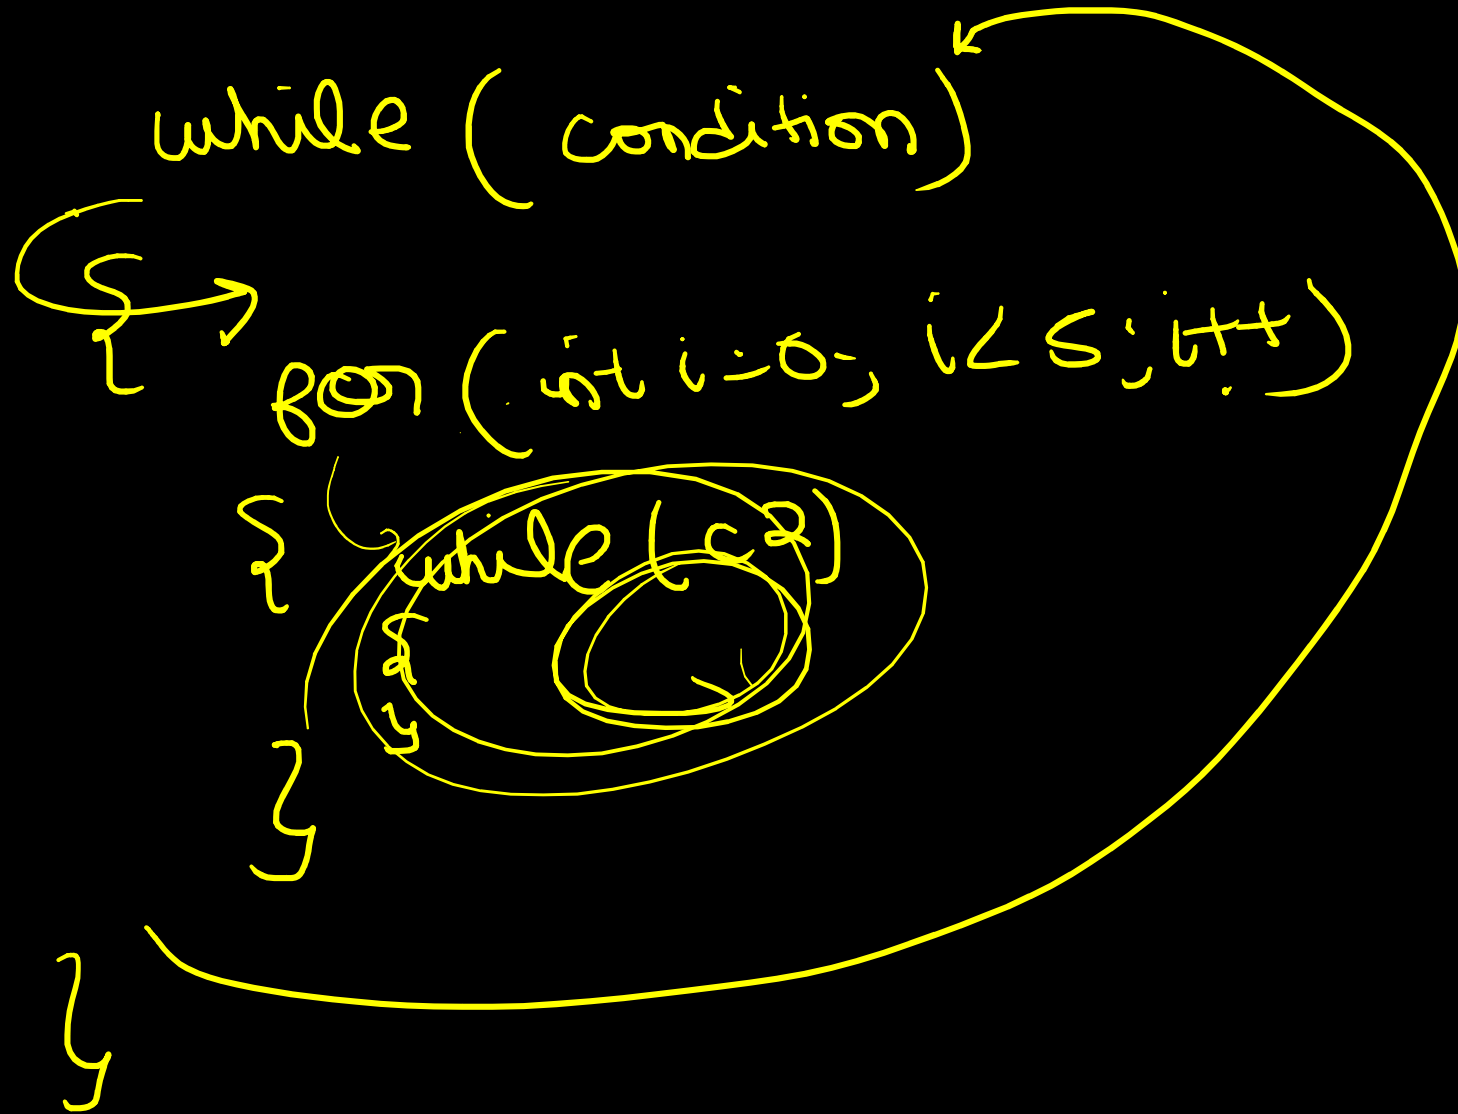 while ( condition )
{
for ( int i = 0 ; i < 5 ; i++ )
{
while ( c2 )
{
}
}
}